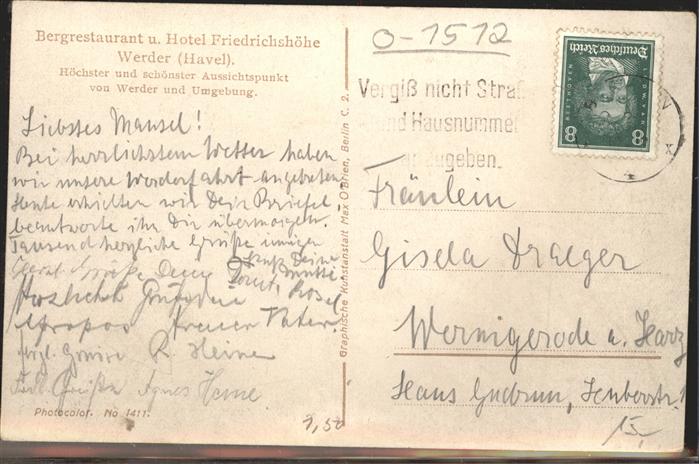 Bergrestaurant u. Hotel Friedrichshöhe
Werder (Havel).
Höchster und schönster Aussichtspunkt
von Werder und Umgebung.
Liebstes Mausel!
Bei herrlichstem Wetter haben
wir unsere Werderfahrt angetreten
Heute erhielten wir Dein Briefel
beantworte ihn Dir übermorgen.
Tausend herzliche Grüße innigen
Kuß Deine
Mutti
Herzl. Grüße Deine Rosel
Herzlichst grüßt Deine
Vater
Herzl. Grüße R. Heine
Agnes Heine.
Photocolor. No 1411.
Graphische Kunstanstalt Max O'Brien, Berlin C. 2.
0-1512
Vergiß nicht Straß
und Hausnummer
anzugeben.
Deutsches Reich
BEETHOVEN
8 8
Fräulein
Gisela Draeger
Wernigerode a. Harz
Haus Gudrun,
15.
7,50